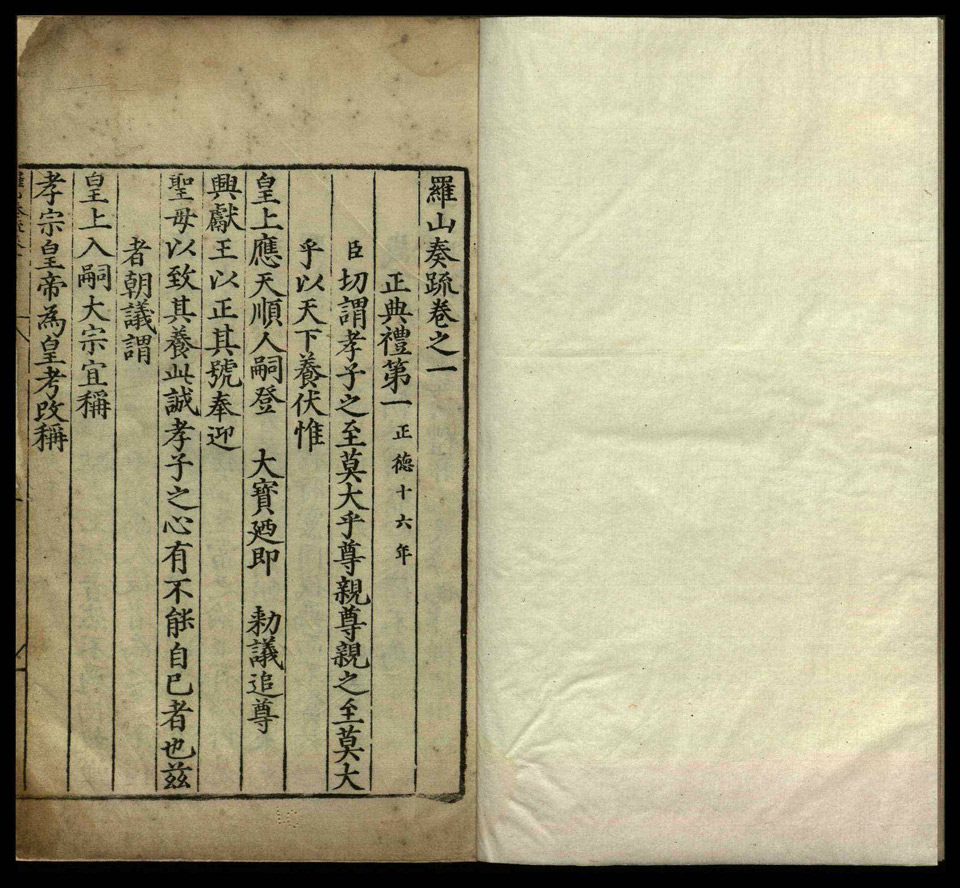 羅山奏疏卷之一
正典禮第一 正德十六年
臣切謂孝子之至莫大乎尊親尊親之至莫大
乎以天下養伏惟
皇上應天順人嗣登 大寶廼即 勑議追尊
興獻王以正其號奉迎
聖母以致其養此誠孝子之心有不能自已者也茲
者朝議謂
皇上入嗣大宗宜稱
孝宗皇帝為皇考改稱